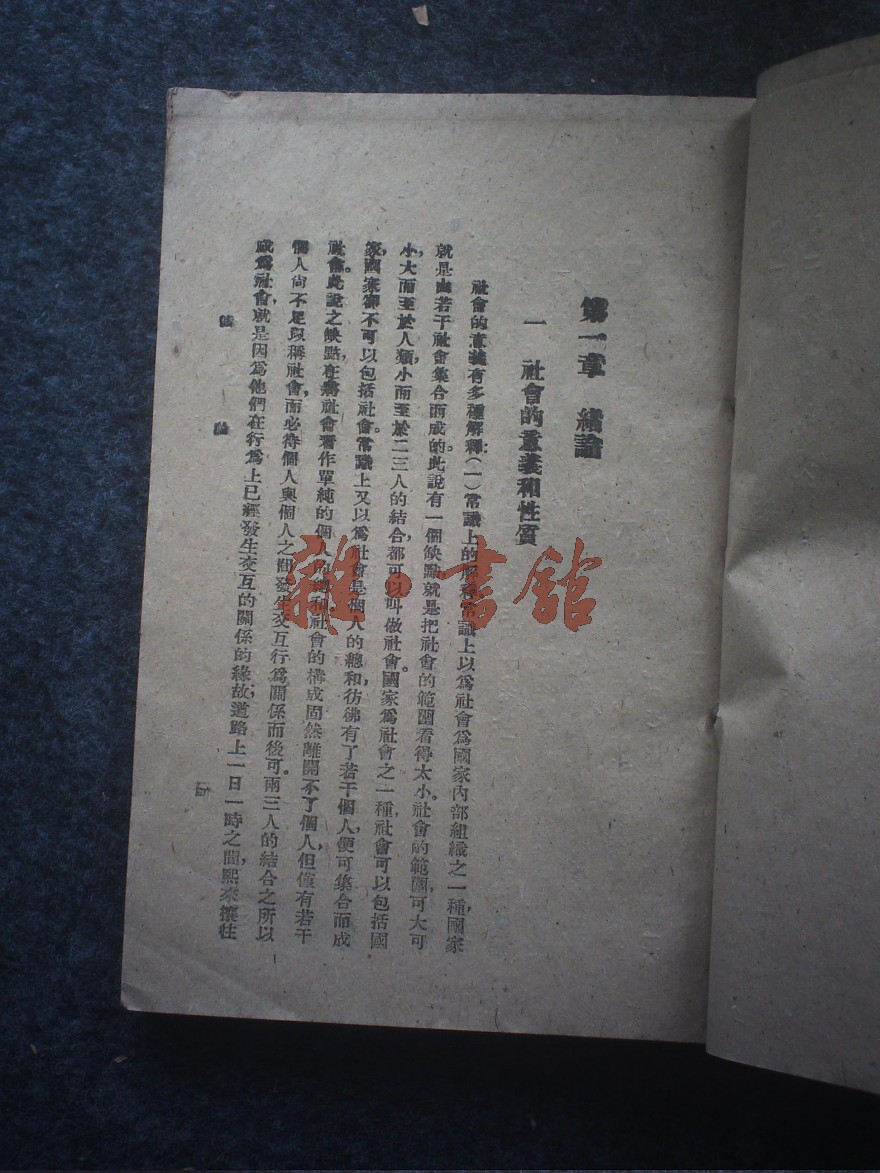 第一章 緒論
一 社會的意義和性質
社會的意義有多種解釋:(一)常識上的解釋常識上以爲社會爲國家內部組織之一種,國家
就是由若干社會集合而成的。此說有一個缺點,就是把社會的範圍看得太小。社會的範圍,可大可
小,大而至於人類,小而至於二三人的結合,都可以叫做社會。國家爲社會之一種,社會可以包括國
家,國家卻不可以包括社會。常識上又以爲社會是個人的總和,彷彿有了若干個人,便可集合而成
社會。此說之缺點,在將社會看作單純的個人的總和。社會的構成,固然離開不了個人,但僅有若干
個人尙不足以稱社會,而必待個人與個人之間發生交互行爲關係而後可。兩三人的結合之所以
成爲社會,就是因爲他們在行爲上已經發生交互的關係的緣故;道路上一日一時之間,熙來攘往
緒 論
一
雜·書館